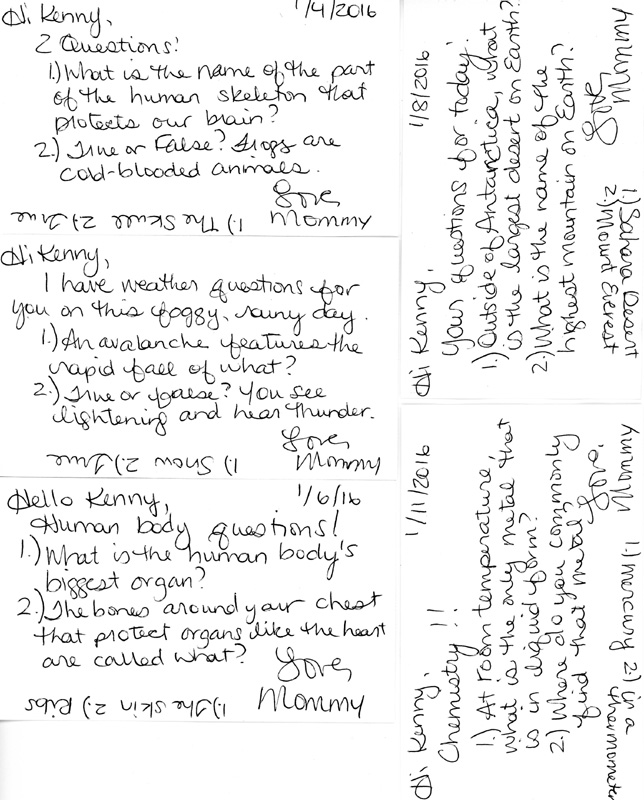 Hi Kenny, 1/4/2016
2 Questions!
1.) What is the name of the part
of the human skeleton that
protects our brain?
2.) True or False? Frogs are
cold-blooded animals.
Love,
Mommy
1.) The Skull 2.) True
Hi Kenny,
I have weather questions for
you on this foggy, rainy day.
1.) An avalanche features the
rapid fall of what?
2.) True or false? You see
lightening and hear thunder.
Love,
Mommy
1.) Snow 2.) True
Hello Kenny, 1/6/16
Human body questions!
1.) What is the human body's
biggest organ?
2.) The bones around your chest
that protect organs like the heart
are called what?
Love,
Mommy
1.) The skin 2.) Ribs
1/8/2016
Hi Kenny,
Your questions for today:
1.) Outside of Antarctica, what
is the largest desert on Earth?
2.) What is the name of the
highest mountain on Earth?
Love,
Mommy
1.) Sahara Desert
2.) Mount Everest
1/11/2016
Hi Kenny,
Chemistry!!
1.) At room temperature,
what is the only metal that
is in liquid form?
2.) Where do you commonly
find that metal?
Love,
Mommy
1.) mercury 2.) in a
thermometer